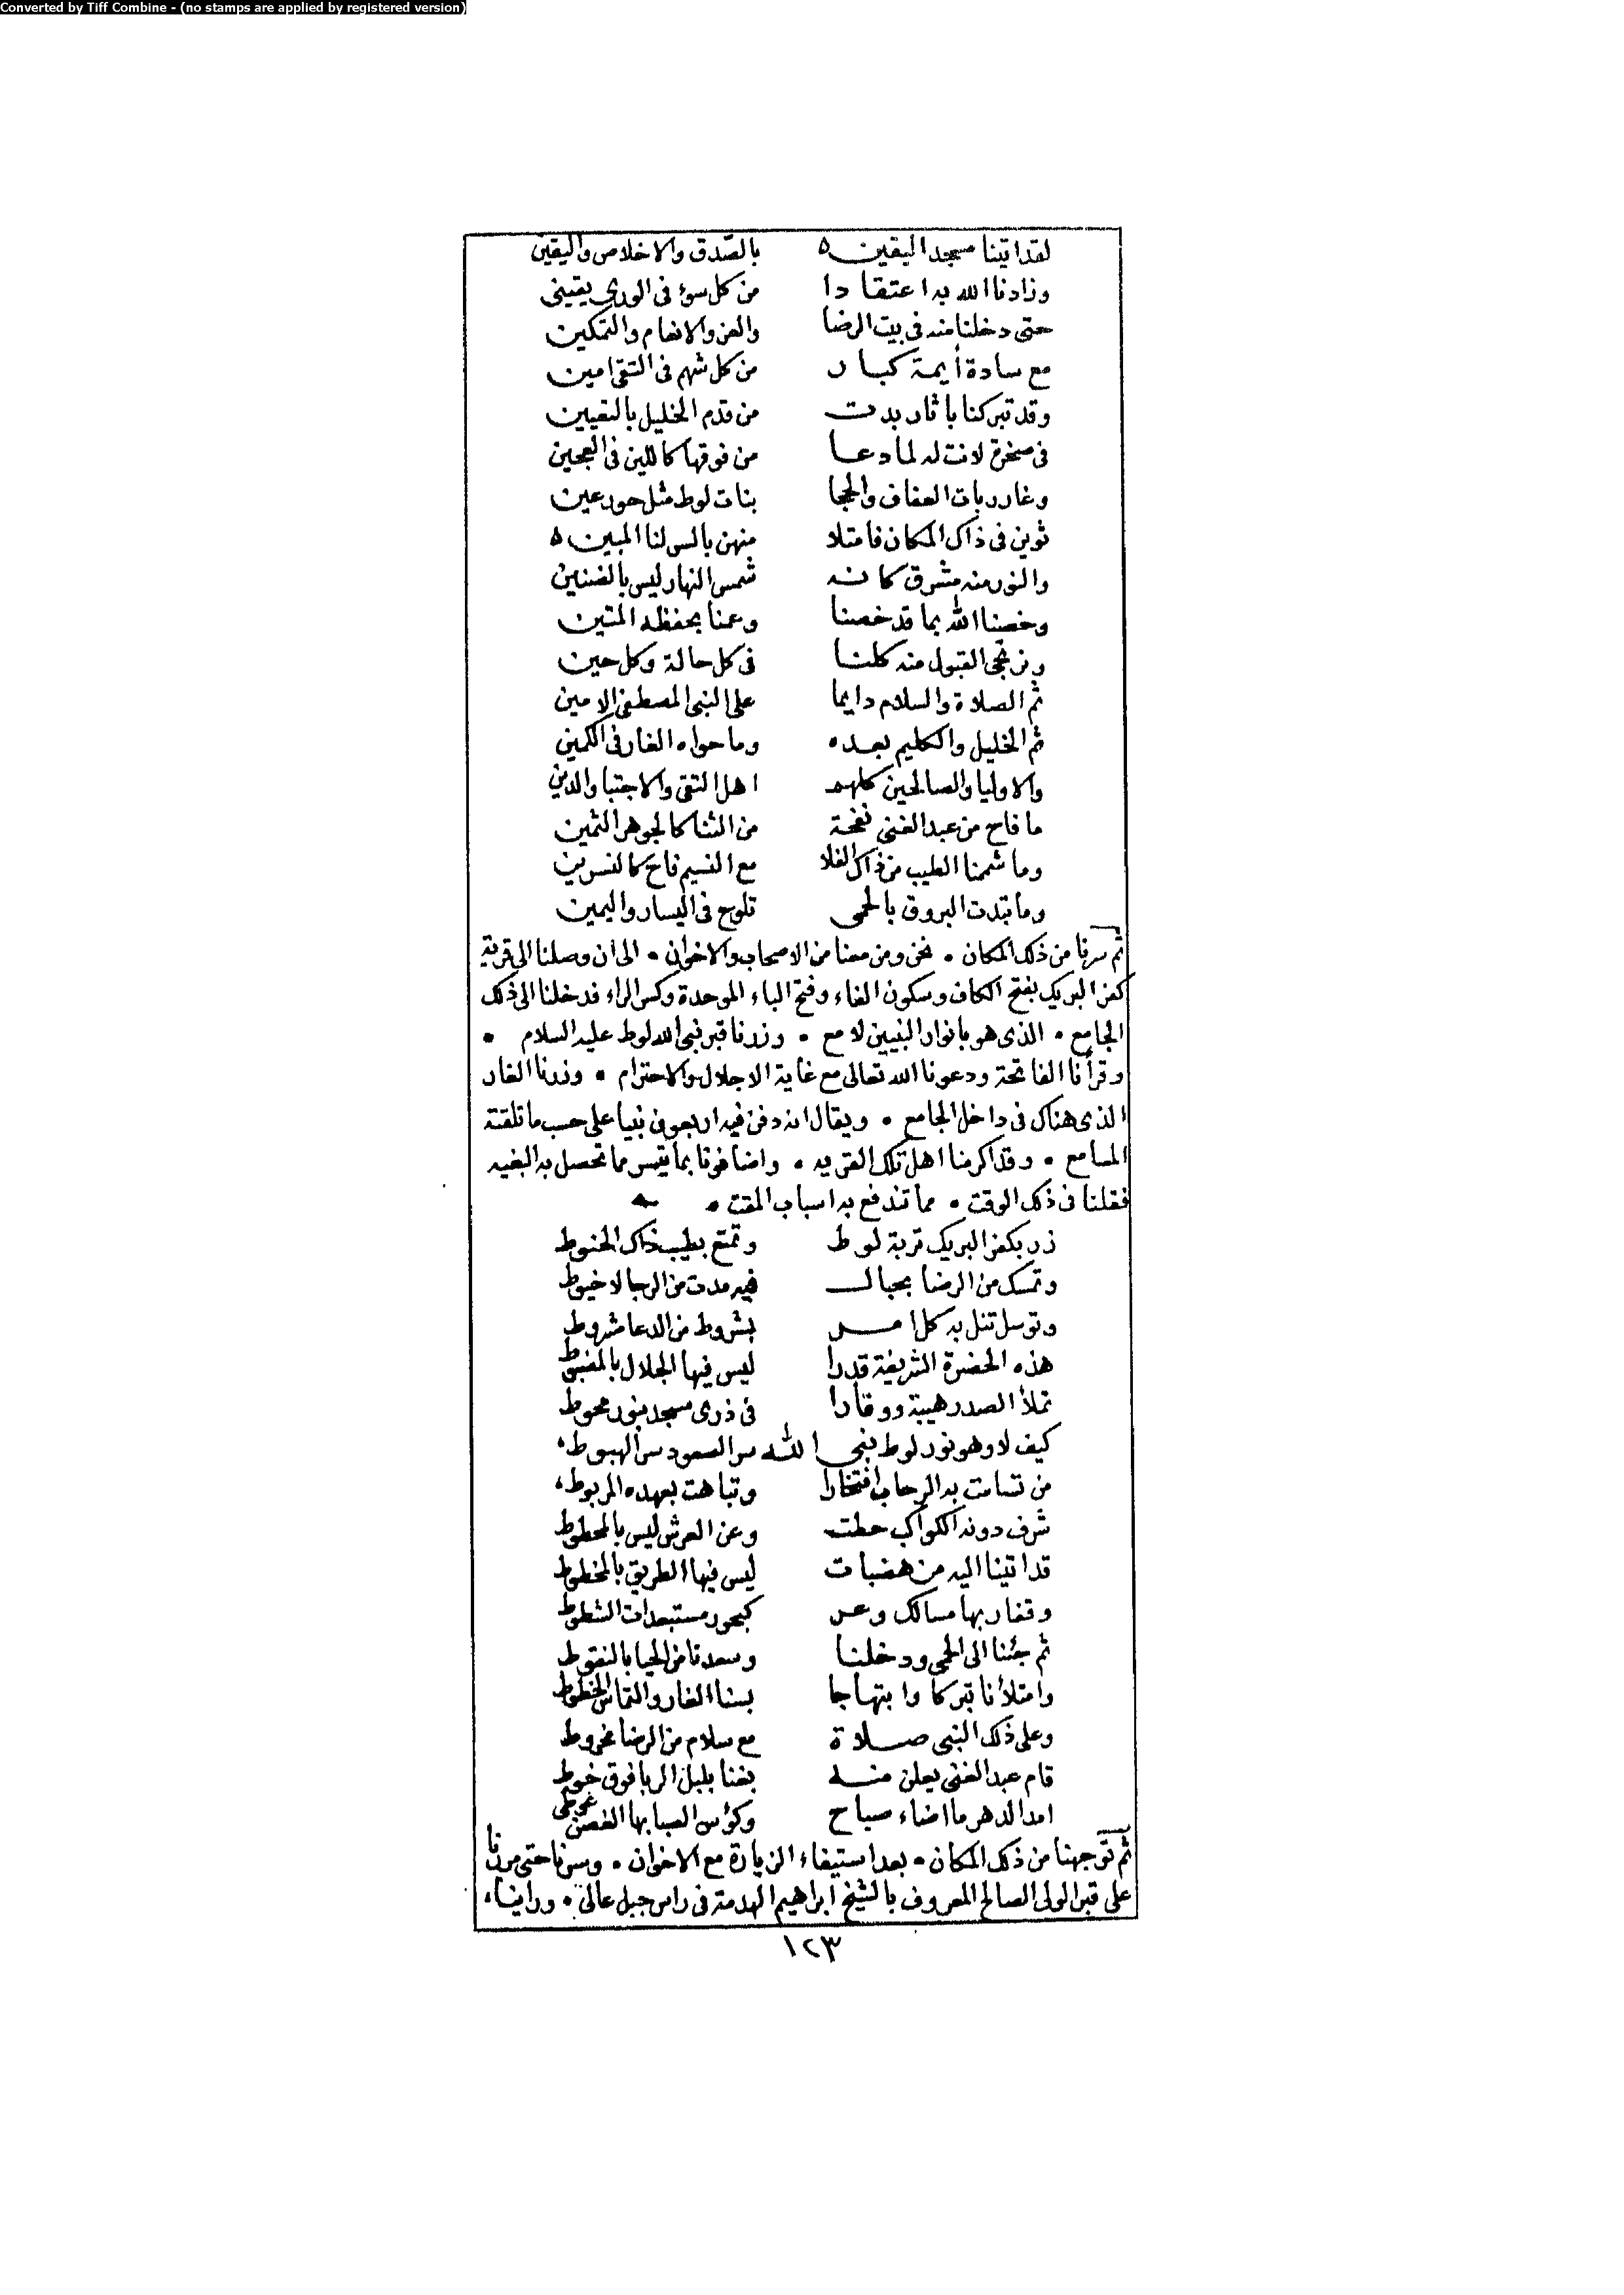 Converted by Tiff Combine - (no stamps are applied by registered version)
لقد اتينا مسجد اليقين بالصّدق والاخلاص واليقين
وزادنا الله به اعتقادا من كل سوء فى الورى يقينى
حتى دخلنا منه فى بيت الرضا والعز والانعام والتمكين
مع سادة أيمة كبار من كل شهم فى التقى امين
وقد تبركنا باثار بدت من قدم الخليل بالتعيين
فى صخرة لانت له لما دعا من فوقها كاللين فى العجين
وغار ربات العفاف والحجا بنات لوط مثل حور عين
ثوين فى ذاك المكان فامتلا منهن بالسر لنا المبين
والنور منه مشرق كانه شمس النهار ليس بالضنين
وخصنا الله بما قد خصنا وعمنا بحفظه المتين
ونرتجى القبول منه كلنا فى كل حالة وكل حين
ثم الصلاة والسلام دايما على النبى المصطفى الامين
ثم الخليل والكليم بعده وما حواه الغار فى الكمين
والاوليا والصالحين كلهم اهل التقى والاجتبا والدين
ما فاح من عبد الغنى نفحة من الثنا كالجوهر الثمين
وما شممنا الطيب من ذاك الفلا مع النسيم فاح كالنسرين
وما تبدت البروق بالحمى تلوح فى اليسار واليمين
ثم سرنا من ذلك المكان • نحن ومن معنا من الاصحاب والاخوان • الى ان وصلنا الى قرية
كفر البريك بفتح الكاف وسكون الفاء وفتح الباء الموحدة وكسر الراء فدخلنا الى ذلك
الجامع • الذى هو بانوار النبيين لامع • وزرنا قبر نبى الله لوط عليه السلام •
وقرأنا الفاتحة ودعونا الله تعالى مع غاية الاجلال والاحترام • وزرنا الغار
الذى هناك فى داخل الجامع • ويقال انه دفن فيه اربعون نبيا على حسب ما تلقته
المسامع • وقد اكرمنا اهل تلك القريه • واضافونا بما تيسر مما تحصل به البغيه
فقلنا فى ذلك الوقت • مما تندفع به اسباب المقت •
زر بكفر البريك تربة لوط وتمتع بطيب ذاك الحنوط
وتمسك من الرضا بحبال فيه مدت من الرجا لا خيوط
وتوسل تنل به كل امر بشروط من الدعا مشروط
هذه الحضرة الشريفة قدرا ليس فيها الجلال بالمغبوط
تملأ الصدر هيبة ووقارا فى ذرى مسجد بنور محوط
كيف لا وهو نور لوط نبى الله سر الصعود سر الهبوط
من تسامت به الرحاب افتخارا وتباهت بعهده المربوط
شرف دونه الكواكب حطت وعن العرش ليس بالمحطوط
قد اتينا اليه من هضبات ليس فيها الطريق بالمخطوط
وقفار بها مسالك وعر كبحور مستبعدات الشطوط
ثم جئنا الى الحمى ودخلنا وسعدنا من الحيا بالنقوط
وامتلأنا تبركا وابتهاجا بسنا الغار والتماس الخطوط
وعلى ذلك النبى صلاة مع سلام من الرضا مخروط
قام عبد الغنى يعلن منه بغنا بلبل الربا فوق خوط
امد الدهر ما اضاء صباح وكؤس الصبا بها الغصن
ثم توجهنا من ذلك المكان • بعد استيفاء الزيارة مع الاخوان • وسرنا حتى مررنا
على قبر الولى الصالح المعروف بالشيخ ابراهيم الهدمة فى راس جبل عالى • وراينا
١٢٣